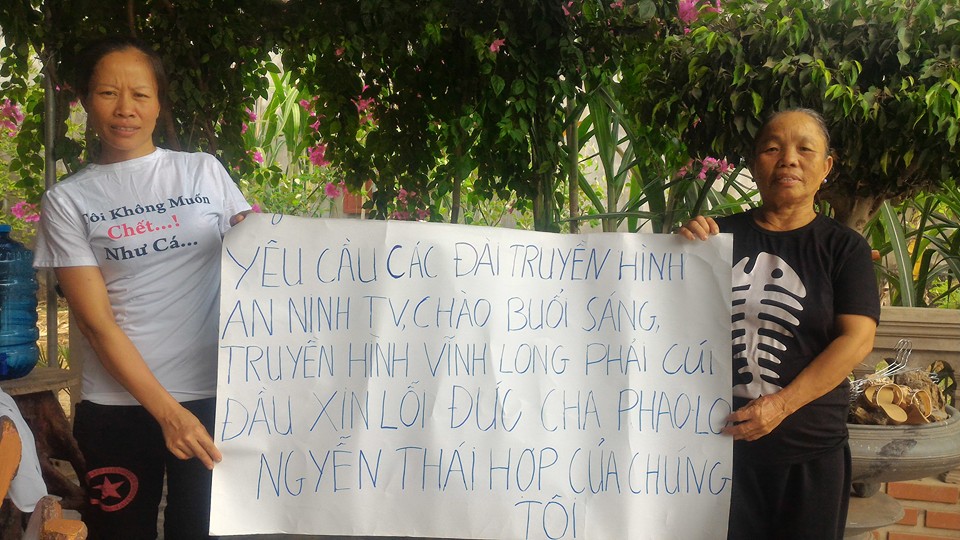 Tôi Không Muốn
Chết...!
Như Cá...
YÊU CẦU CÁC ĐÀI TRUYỀN HÌNH
AN NINH TV, CHÀO BUỔI SÁNG,
TRUYỀN HÌNH VĨNH LONG PHẢI CÚI
ĐẦU XIN LỖI ĐỨC CHA PHAO-LO
NGYỄN THÁI HỢP CỦA CHÚNG
TÔI